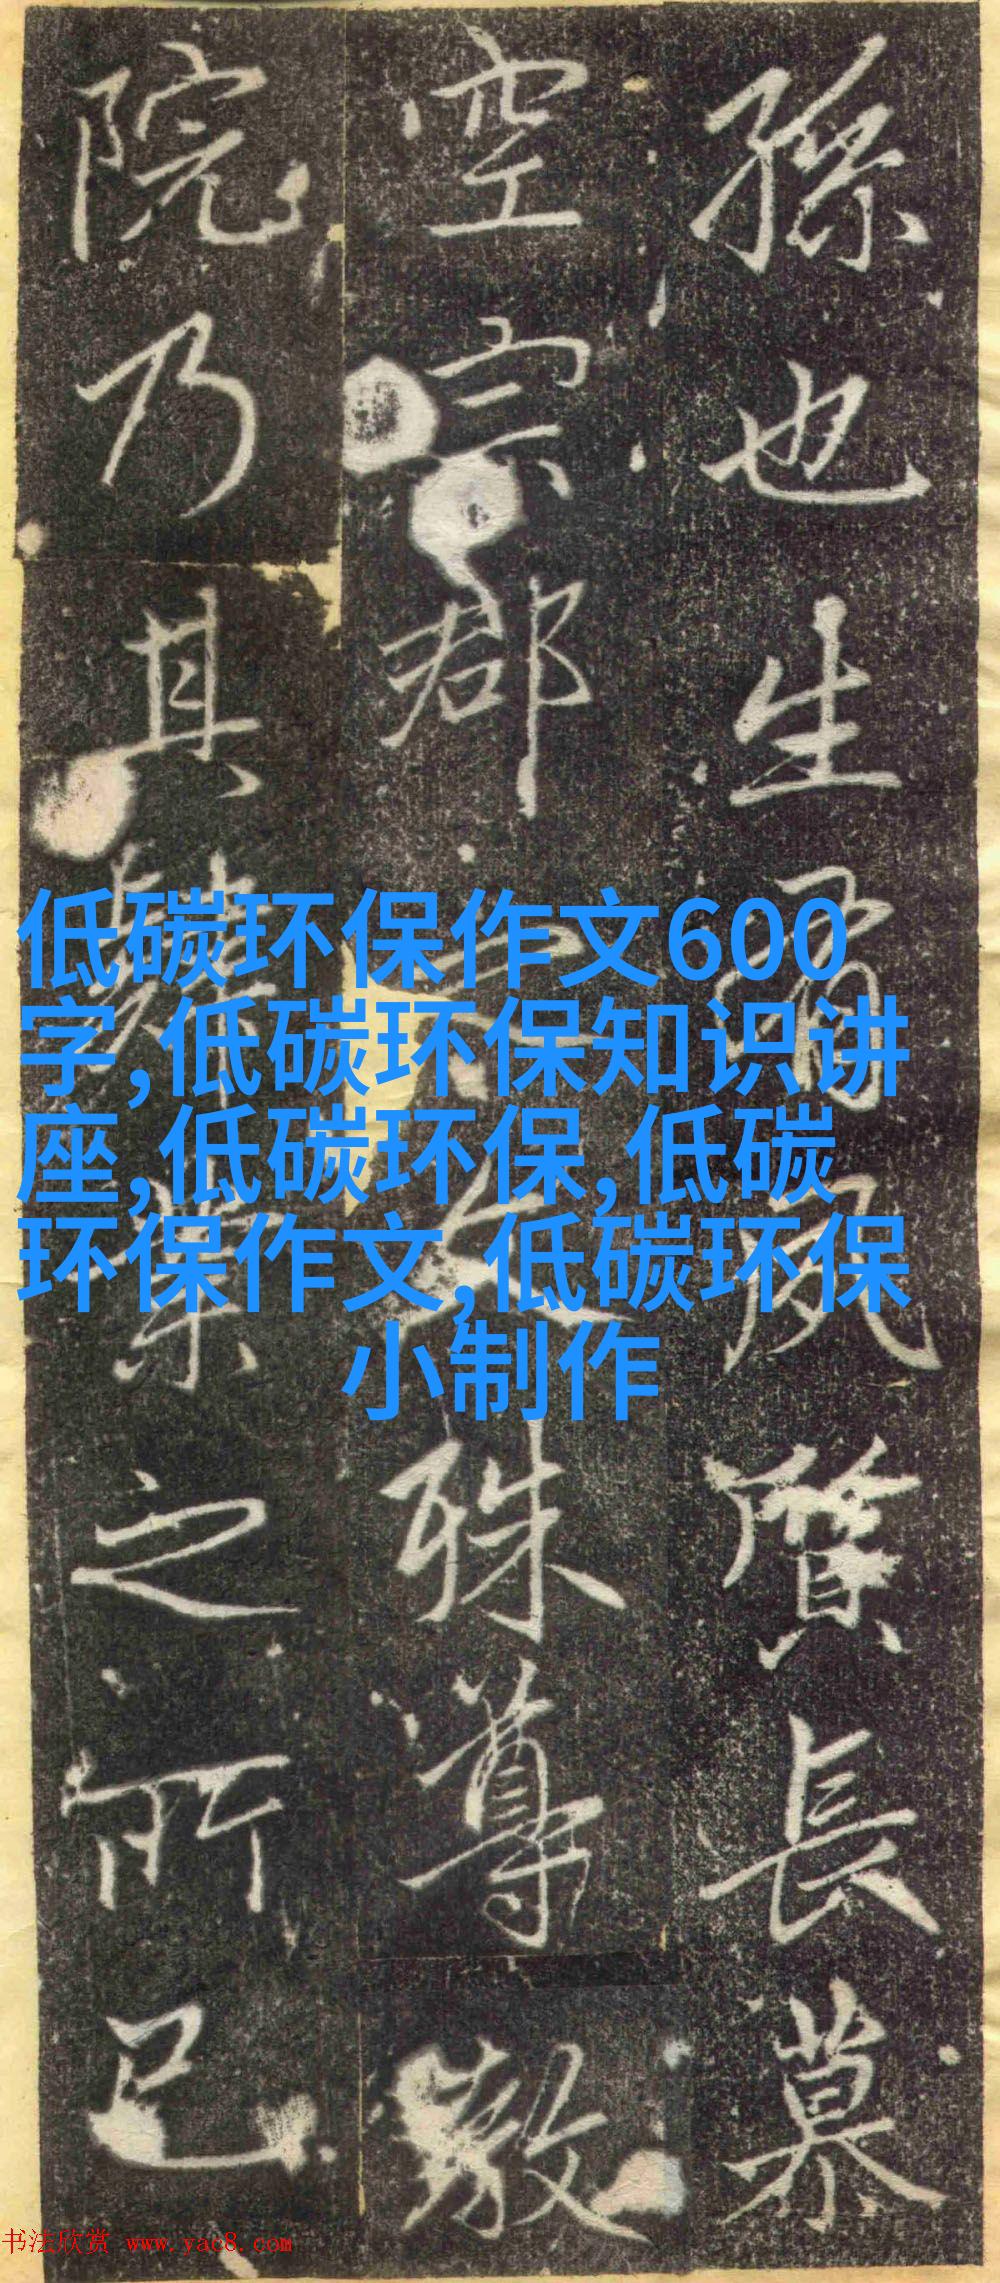 孫也生長慕
空宗郡殊尊敬
院乃其之所已
低碳环保作文600
字,低碳环保知识讲
座,低碳环保,低碳
环保作文,低碳环保
小制作
书法欣赏 www.yac8.com